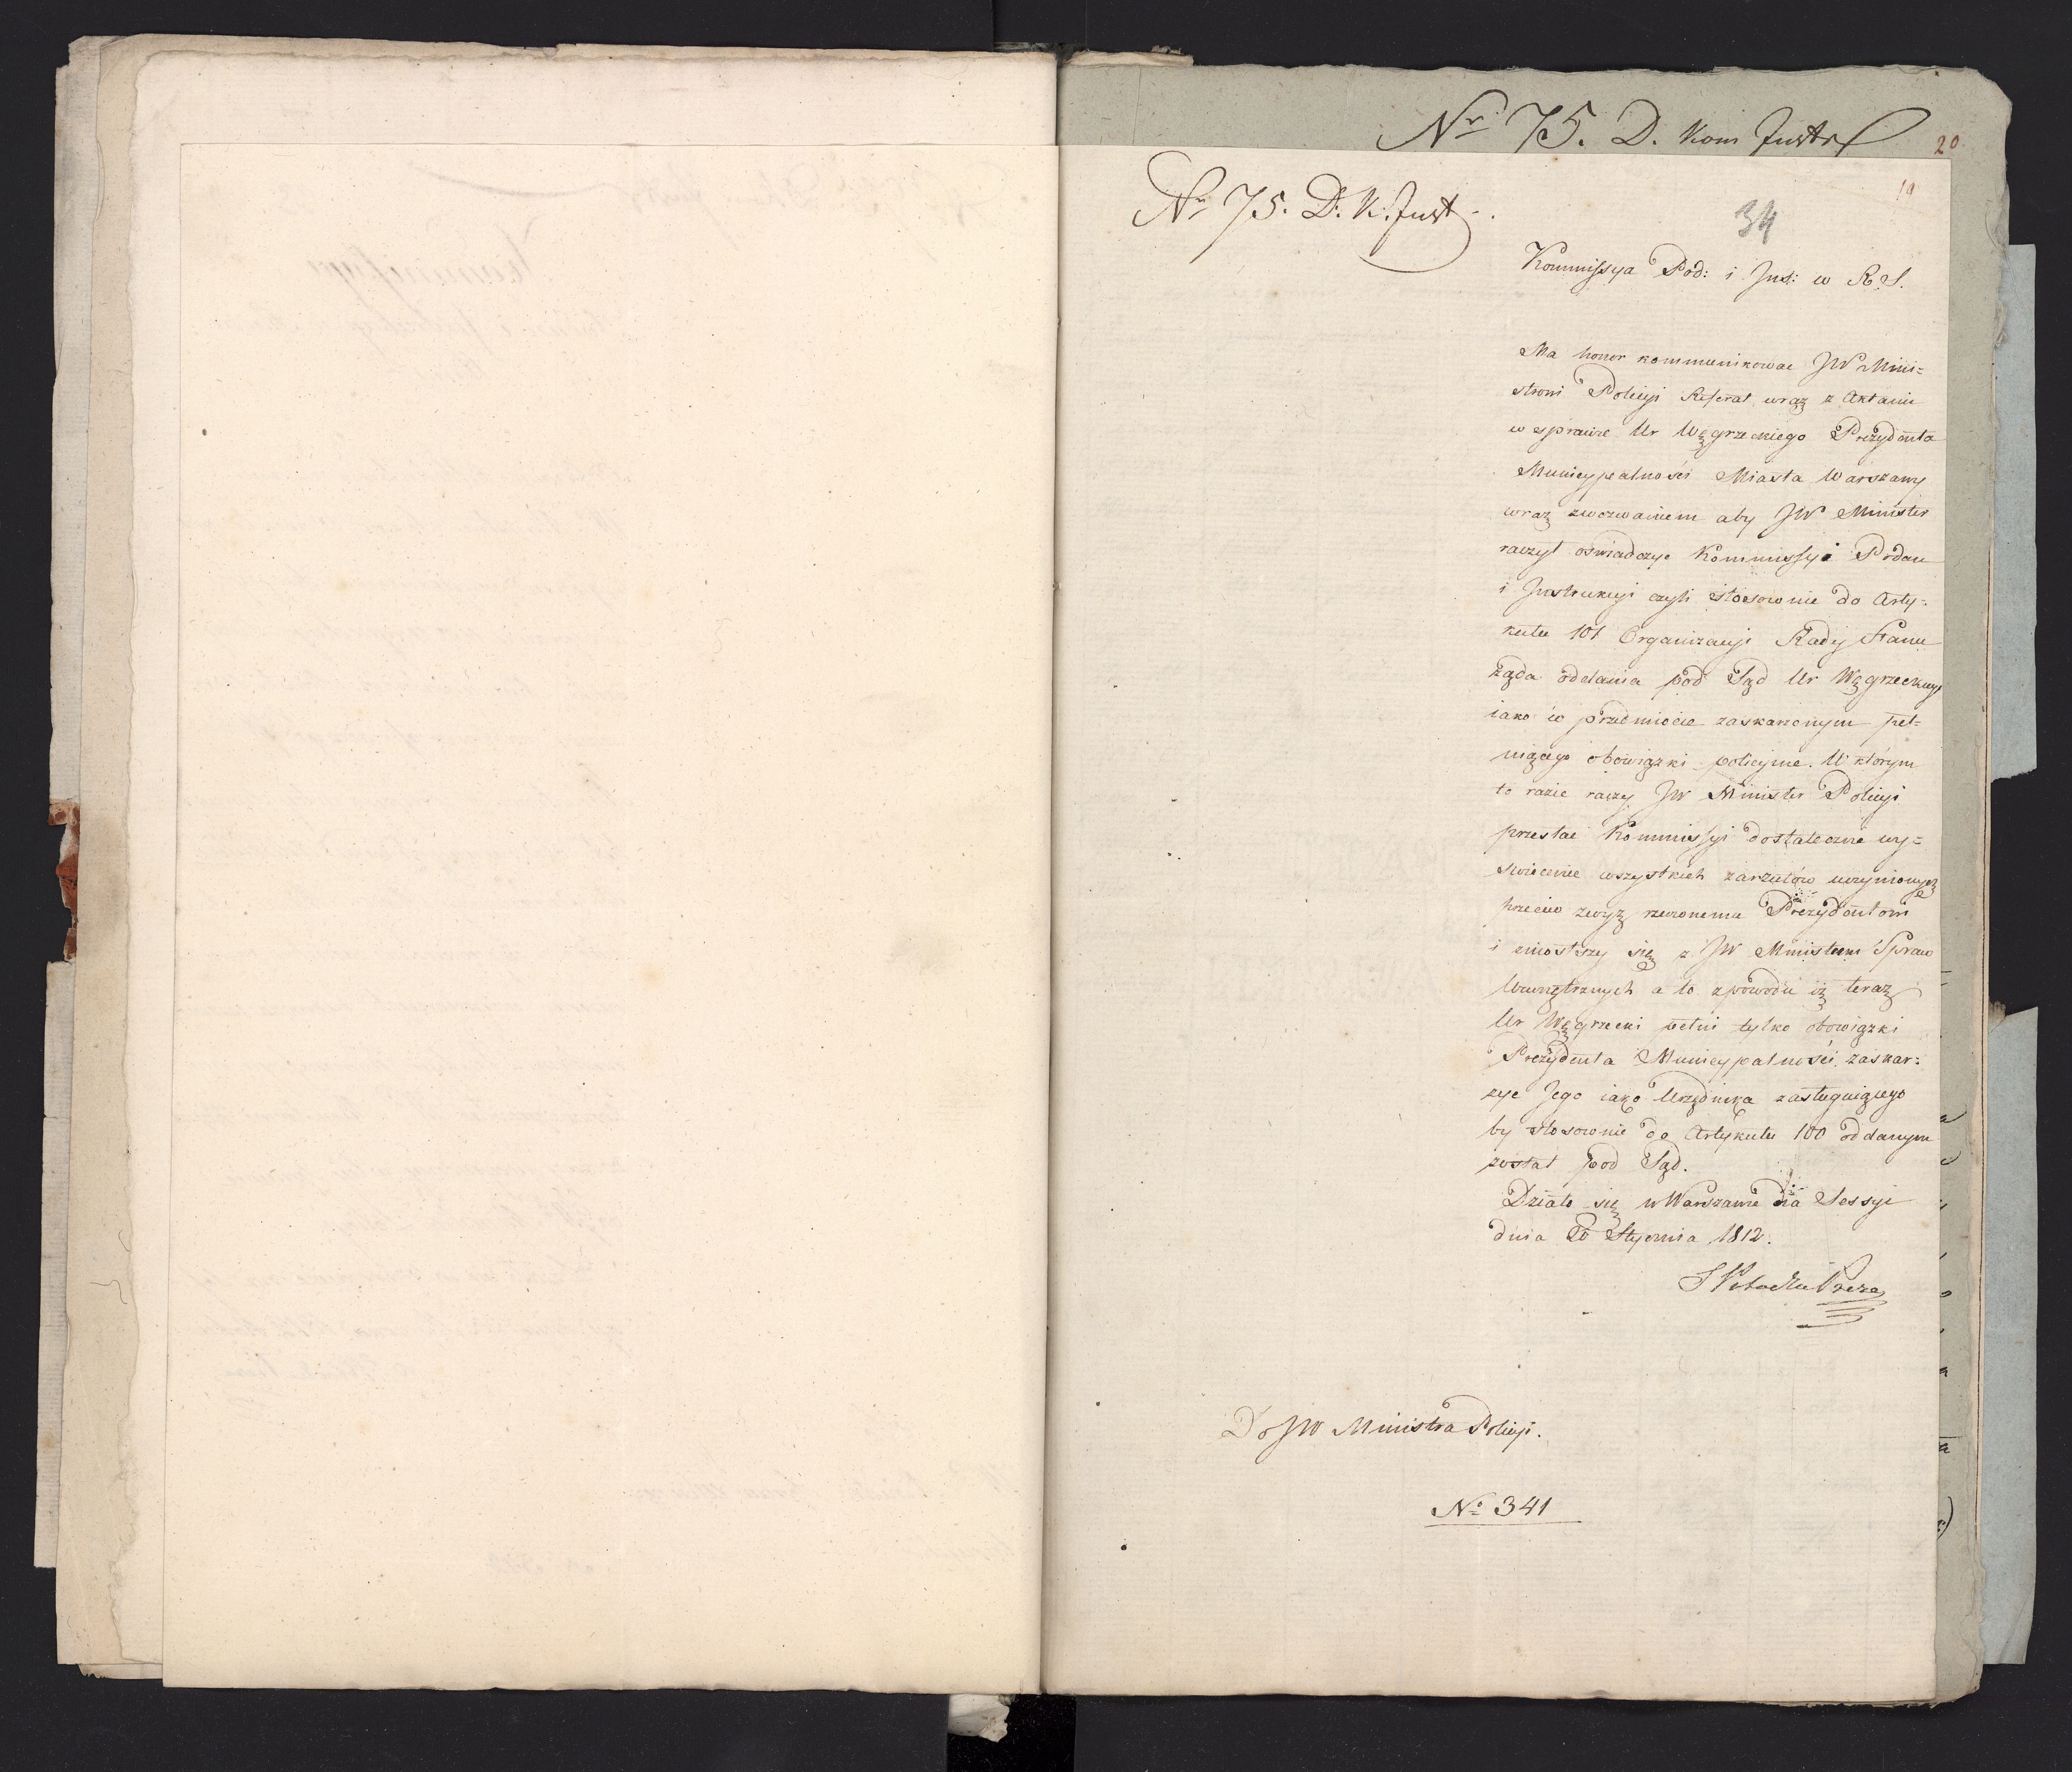 Nr 75. D. Kom Justr
20
Nr 75. D. K. Just.
19
34
Kommissya Pod: i Ins: w R. S.
Ma honor kommunikowac JW Mini=
strowi Policyi Referat wraz z Aktami
w sprawie Ur Węgrzeckiego Prezydenta
Municypalności Miasta Warszawy
wraz zwezwaniem aby JW Minister
raczył oswiadczyc Kommissyi Podan
i Instrukcyi czyli stosownie do Arty-
kułu 101 Organizacyi Rady Stanu
żąda oddania pod Sąd Ur Węgrzeckiego
iako w przedmiocie zaskarzonym peł=
niącego obowiązki policyine. W którym
to razie raczy JW Minister Policyi
przesłac Kommissyi dostateczne wy=
swiecenie wszystkich zarzutów uczynionych
przeciw zwyż rzeczonemu Prezydentowi
i zniosłszy się z JW Ministrem Spraw
Wewnętrznych a to zpowodu iż teraz
Ur Węgrzecki pełni tylko obowiązki
Prezydenta Municypalności zaskar=
zyc Jego iako Urzędnika zasługuiącego
by stosownie do Artykułu 100 oddanym
został pod Sąd.
Działo się w Warszawie na Sessyi
dnia 20 Stycznia 1812.
S Potocki Preze
Do JW Ministra Policyi.
No 341